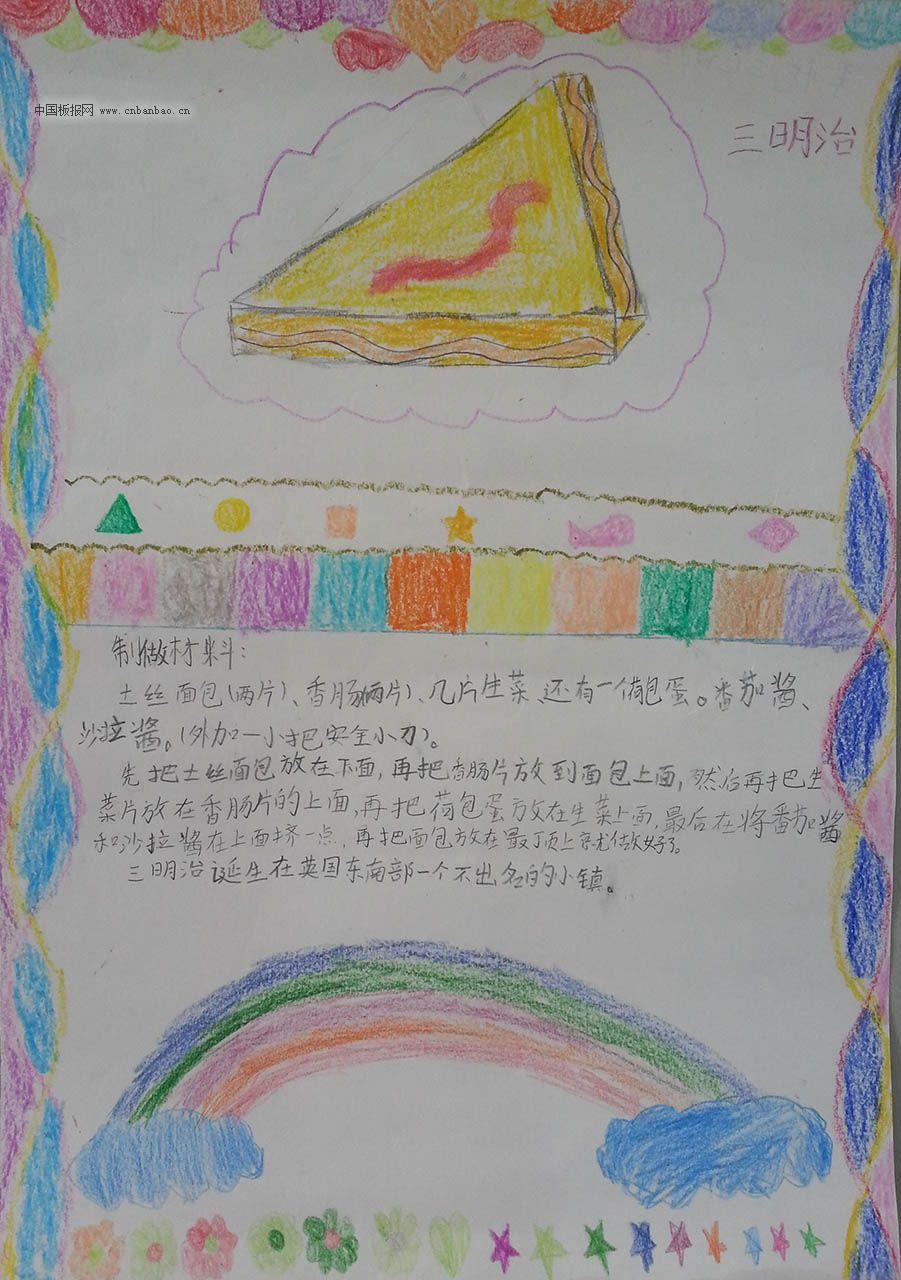 中国板报网 www.cnbanbao.cn
三明治
制做材料：
土丝面包(两片)、香肠(两片)、几片生菜、还有一个荷包蛋。番茄酱、
沙拉酱。(外加一小把安全小刀)。
先把土丝面包放在下面，再把香肠片放到面包上面，然后再把生
菜片放在香肠片的上面，再把荷包蛋放在生菜上面，最后在将番茄酱
和沙拉酱在上面挤一点，再把面包放在最丁页上就做好了。
三明治诞生在英国东南部一个不出名的小镇。